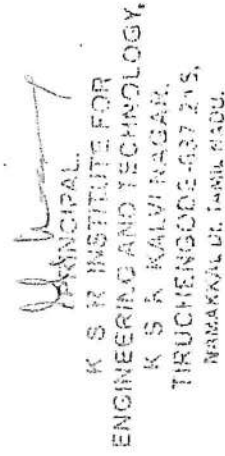 PRINCIPAL,
K S R INSTITUTE FOR
ENGINEERING AND TECHNOLOGY,
K S R KALVI NAGAR,
TIRUCHENGODE-637 215,
NAMAKKAL DT, TAMIL NADU.